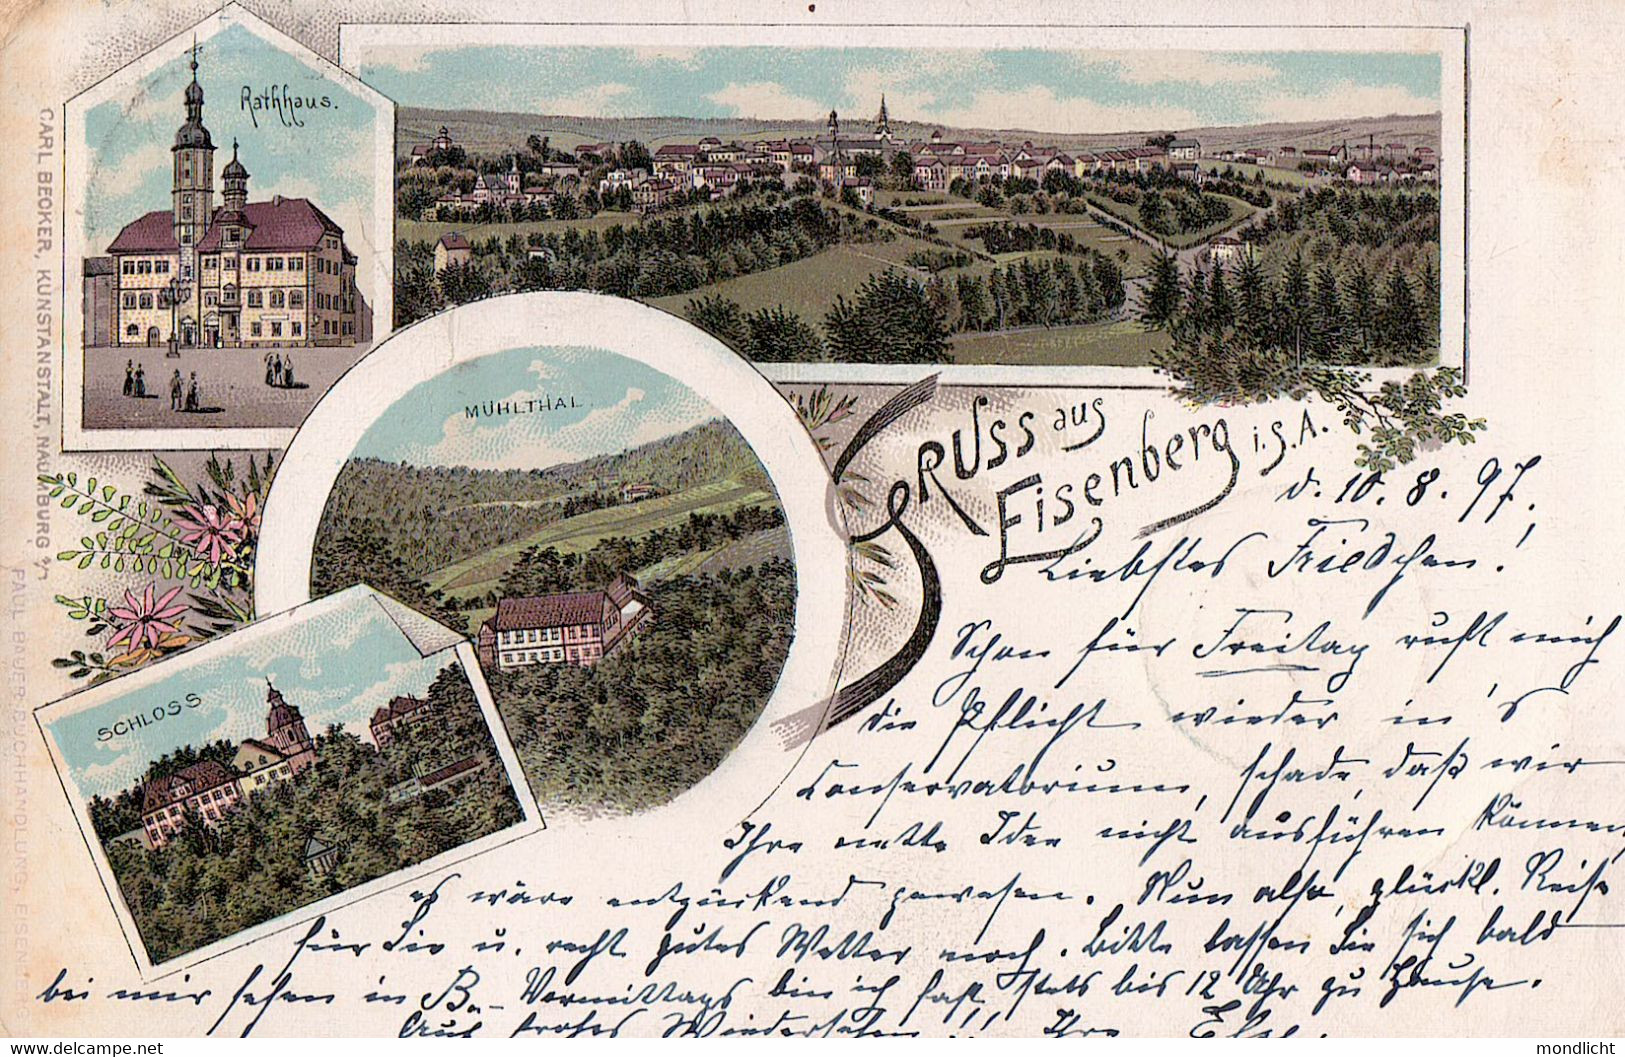 Rathhaus.
MÜHLTHAL.
SCHLOSS
CARL BECKER, KUNSTANSTALT, NAUMBURG a/S
PAUL BAUER, BUCHHANDLUNG, EISENBERG
GRUSS aus
Eisenberg i. S. A.
d. 10. 8. 97.
Liebstes Friedchen!
Schon für Freitag ruft mich
die Pflicht wieder in's
Conservatorium, schade, daß wir
Ihre nette Idee nicht ausführen können,
es wäre entzückend gewesen. Nun also, glückl. Reise
für Sie u. recht gutes Wetter noch. Bitte lassen Sie sich bald
bei mir sehen in B. Vormittags bin ich fast stets bis 12 Uhr zu Hause.
Auf frohes Wiedersehen!! Ihre Else.
© The owner of delcampe.net item 1536928654
mondlicht